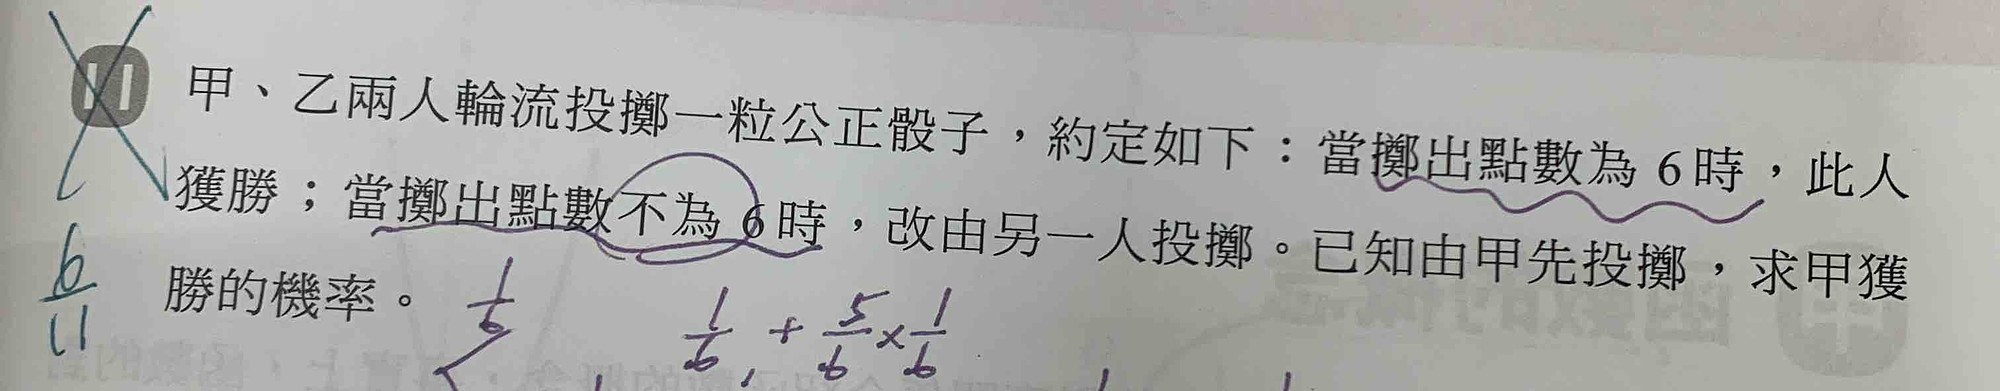 11 甲、乙兩人輪流投擲一粒公正骰子,約定如下:當擲出點數為 6 時,此人
獲勝;當擲出點數不為 6 時,改由另一人投擲。已知由甲先投擲,求甲獲
勝的機率。
6/11
1/6
1/6 + 5/6 × 1/6